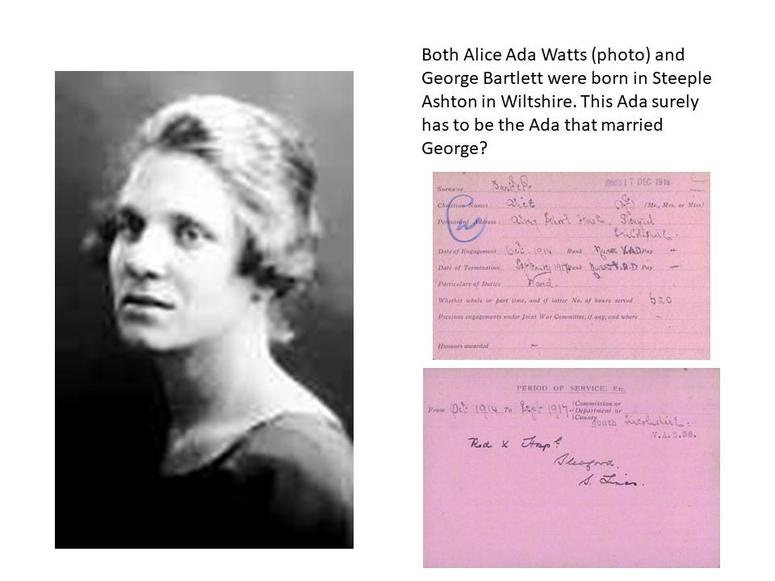 Both Alice Ada Watts (photo) and
George Bartlett were born in Steeple
Ashton in Wiltshire. This Ada surely
has to be the Ada that married
George?
17 DEC 1918
Surname
Christian Names: Alice (Mr., Mrs. or Miss)
Permanent Address:
Date of Engagement Oct. 1914 Rank Nurse V.A.D Pay –
Date of Termination Rank Nurse V.A.D Pay –
Particulars of Duties Ward.
Whether whole or part time, and if latter No. of hours served 620
Previous engagements under Joint War Committee, if any, and where –
Honours awarded –
PERIOD OF SERVICE, Etc.
From Oct. 1914 To Sept 1917 Commission or
Department or
County
South
V.A.D.
Red X Hospl
Sleaford.
S. Lincs.